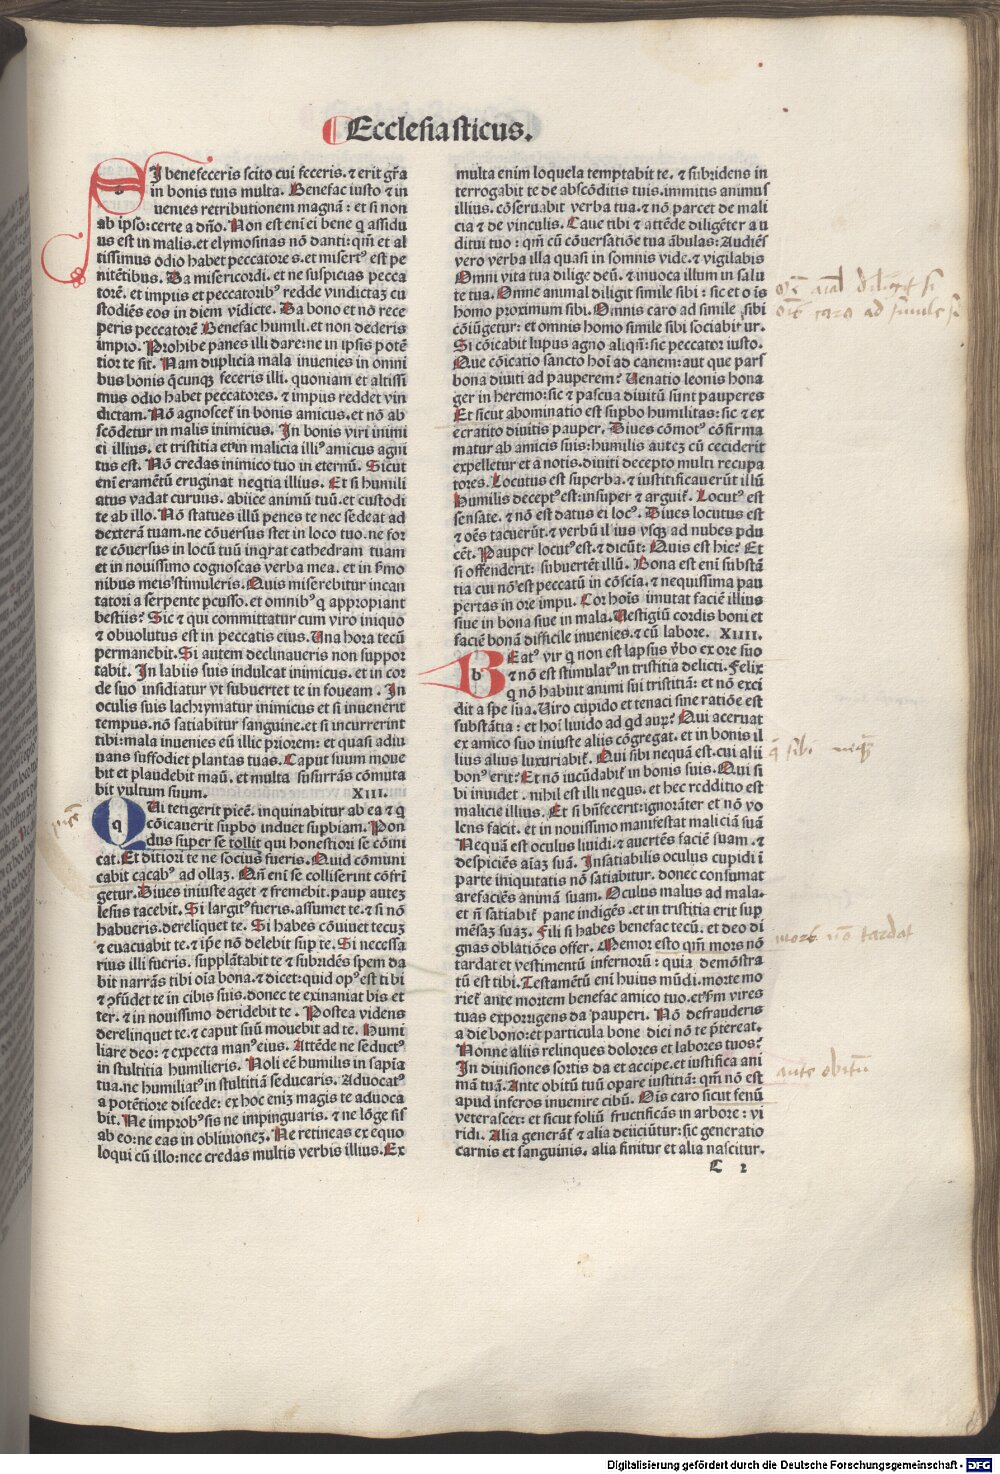 Ecclesiasticus.
SI benefeceris scito cui feceris. ⁊ erit gr̄a
in bonis tuis multa. Benefac iusto ⁊ in
uenies retributionem magnā: et si non
ab ip̄o: certe a dn̄o. Non est enī ei bene q assidu
us est in malis. et elymosinas nō danti: qm̄ et al
tissimus odio habet peccatores. et misertꝰ est pe
nitētibus. Da misericordi. et ne suspicias pecca
torē. et impiis et peccatoribꝰ redde vindictaꝫ cu
stodiēs eos in diem vīdicte. Da bono et nō rece
peris peccatorē Benefac humili. et non dederis
impio. Prohibe panes illi dare: ne in ipsis potē
tior te sit. Nam duplicia mala inuenies in omni
bus bonis q̄cunqꝫ feceris illi. quoniam et altissi
mus odio habet peccatores. ⁊ impius reddet vin
dictam. Nō agnoscet̄ in bonis amicus. et nō ab
scōdetur in malis inimicus. In bonis viri inimi
ci illius. et tristitia et in malicia illiꝰ amicus agni
tus est. Nō credas inimico tuo in eternū. Sicut
enī eramētū eruginat neq̄tia illius. Et si humili
atus vadat curuus. abiice animū tuū. et custodi
te ab illo. Nō statues illū penes te nec sedeat ad
dexterā tuam. ne cōuersus stet in loco tuo. ne for
te cōuersus in locū tuū inq̄rat cathedram tuam
et in nouissimo cognoscas verba mea. et in ẜmo
nibus meis stimuleris. Quis miserebitur incan
tatori a serpente ꝑcusso. et omnibꝰ q appropiant
bestiis? Sic ⁊ qui committatur cum viro iniquo
⁊ obuolutus est in peccatis eius. Una hora tecū
permanebit. Si autem declinaueris non suppor
tabit. In labiis suis indulcat inimicus. et in cor
de suo insidiatur vt subuertet te in foueam. In
oculis suis lachrymatur inimicus et si inuenerit
tempus. nō satiabitur sanguine. et si incurrerint
tibi: mala inuenies eū illic priorem: et quasi adiu
uans suffodiet plantas tuas. Caput suum moue
bit et plaudebit manū. et multa susurrās cōmuta
bit vultum suum. XIII.
QUi tetigerit picē. inquinabitur ab ea ⁊ q
cōicauerit supbo induet supbiam. Pon
dus super se tollit qui honestiori se cōmi
cat. Et ditiori te ne socius fueris. Quid cōmuni
cabit cacabꝰ ad ollaꝫ. Qn̄ enī se colliserint cōfrī
getur. Diues iniuste aget ⁊ fremebit. paup auteꝫ
lesus tacebit. Si largitꝰ fueris. assumet te. ⁊ si nō
habueris. derelīquet te. Si habes cōuiuet tecuꝫ
⁊ euacuabit te. ⁊ ip̄e nō delebit sup te. Si necessa
rius illi fueris. supplātabit te ⁊ subridēs spem da
bit narrās tibi oīa bona. ⁊ dicet: quid opꝰ est tibi
⁊ ꝯfūdet te in cibis suis. donec te exinaniat bis et
ter. ⁊ in nouissimo deridebit te. Postea videns
derelinquet te. ⁊ caput suū mouebit ad te. Humi
liare deo: ⁊ expecta manꝰ eius. Attēde ne seductꝰ
in stultitia humilieris. Noli eē humilis in sapīa
tua. ne humiliatꝰ in stultitiā seducaris. Aduocatꝰ
a potētiore discede: ex hoc eniꝫ magis te aduoca
bit. Ne improbꝰ sis ne impinguaris. ⁊ ne lōge sis
ab eo: ne eas in obliuioneꝫ. Ne retineas ex equo
loqui cū illo: nec credas multis verbis illius. Ex
multa enim loquela temptabit te. ⁊ subridens in
terrogabit te de abscōditis tuis. immitis animus
illius. cōseruabit verba tua. ⁊ nō parcet de mali
cia ⁊ de vinculis. Caue tibi ⁊ attēde diligēter a u
ditui tuo: qm̄ cū cōuersatiōe tua ābulas: Audiēs
vero verba illa quasi in somnis vide. ⁊ vigilabis
Omni vita tua dilige deū. ⁊ inuoca illum in salu
te tua. Omne animal diligit simile sibi: sic et o īs
homo proximum sibi. Omnis caro ad simile sibi
cōiūgetur: et omnis homo simile sibi sociabitur.
Si cōicabit lupus agno aliqn̄: sic peccator iusto.
Que cōicatio sancto hoī ad canem: aut que pars
bona diuiti ad pauperem? Uenatio leonis hona
ger in heremo: sic ⁊ pascua diuitū sunt pauperes
Et sicut abominatio est supbo humilitas: sic ⁊ ex
ecratio diuitis pauper. Diues cōmotꝰ cōfirma
matur ab amicis suis: humilis auteꝫ cū ceciderit
expelletur et a notis. diuiti decepto multi recupa
tores. Locutus est superba. ⁊ iustificauerūt illū
Humilis deceptꝰ est: insuper ⁊ arguit̄. Locutꝰ est
sensate. ⁊ nō est datus ei locꝰ. Diues locutus est
⁊ oēs tacuerūt. ⁊ verbū illius vsqꝫ ad nubes pdu
cēt. Pauper locutꝰ est. ⁊ dicūt: Quis est hic? Et
si offenderit: subuertēt illū. Bona est enī substā
tia cui nō est peccatū in cōscīa. ⁊ nequissima pau
pertas in ore impii. Cor hoīs imutat faciē illius
siue in bona siue in mala. Uestigiū cordis boni et
faciē bonā difficile inuenies. ⁊ cū labore. XIIII.
BEatꝰ vir q non est lapsus v̄bo ex ore suo
⁊ nō est stimulatꝰ in tristitia delicti. Felix
q nō habuit animi sui tristitiā: et nō exci
dit a spe sua. Uiro cupido et tenaci sine ratiōe est
substātia: et hoī liuido ad qd auꝝ? Qui aceruat
ex amico suo iniuste aliis cōgregat. et in bonis il
lius alius luxuriabit̄. Qui sibi nequā est. cui alii
bonꝰ erit? Et nō iucūdabit̄ in bonis suis. Qui si
bi inuidet. nihil est illi nequs. et hec redditio est
malicie illius. Et si bn̄fecerit: ignorāter et nō vo
lens facit. et in nouissimo manifestat maliciā suā
Nequā est oculus liuidi. ⁊ auertēs faciē suam. ⁊
despiciēs aīaꝫ suā. Insatiabilis oculus cupidi ī
parte iniquitatis nō satiabitur. donec consumat
arefaciēs animā suam. Oculus malus ad mala.
et n̄ satiabit̄ pane indigēs. et in tristitia erit sup
mēsaꝫ suaꝫ. Fili si habes benefac tecū. et deo di
gnas oblatiōes offer. Memor esto qm̄ mors nō
tardat et vestimentū infernorū: quia demōstra
tū est tibi. Testamētū enī huius mūdi. morte mo
riet̄ ante mortem benefac amico tuo. et ẜm vires
tuas exporrigens da pauperi. Nō defrauderis
a die bono: et particula bone diei nō te p̄tereat.
Nonne aliis relinques dolores et labores tuos?
In diuisiones sortis da et accipe. et iustifica ani
mā tuā. Ante obitū tuū opare iustitiā: qm̄ nō est
apud inferos inuenire cibū. Ois caro sicut fenū
veterascet: et sicut foliū fructificās in arbore: vi
ridi. Alia generāt̄ ⁊ alia deiiciūtur: sic generatio
carnis et sanguinis. alia finitur et alia nascitur.
C 2
mors nō tardat
ante obitū
Digitalisierung gefördert durch die Deutsche Forschungsgemeinschaft - DFG